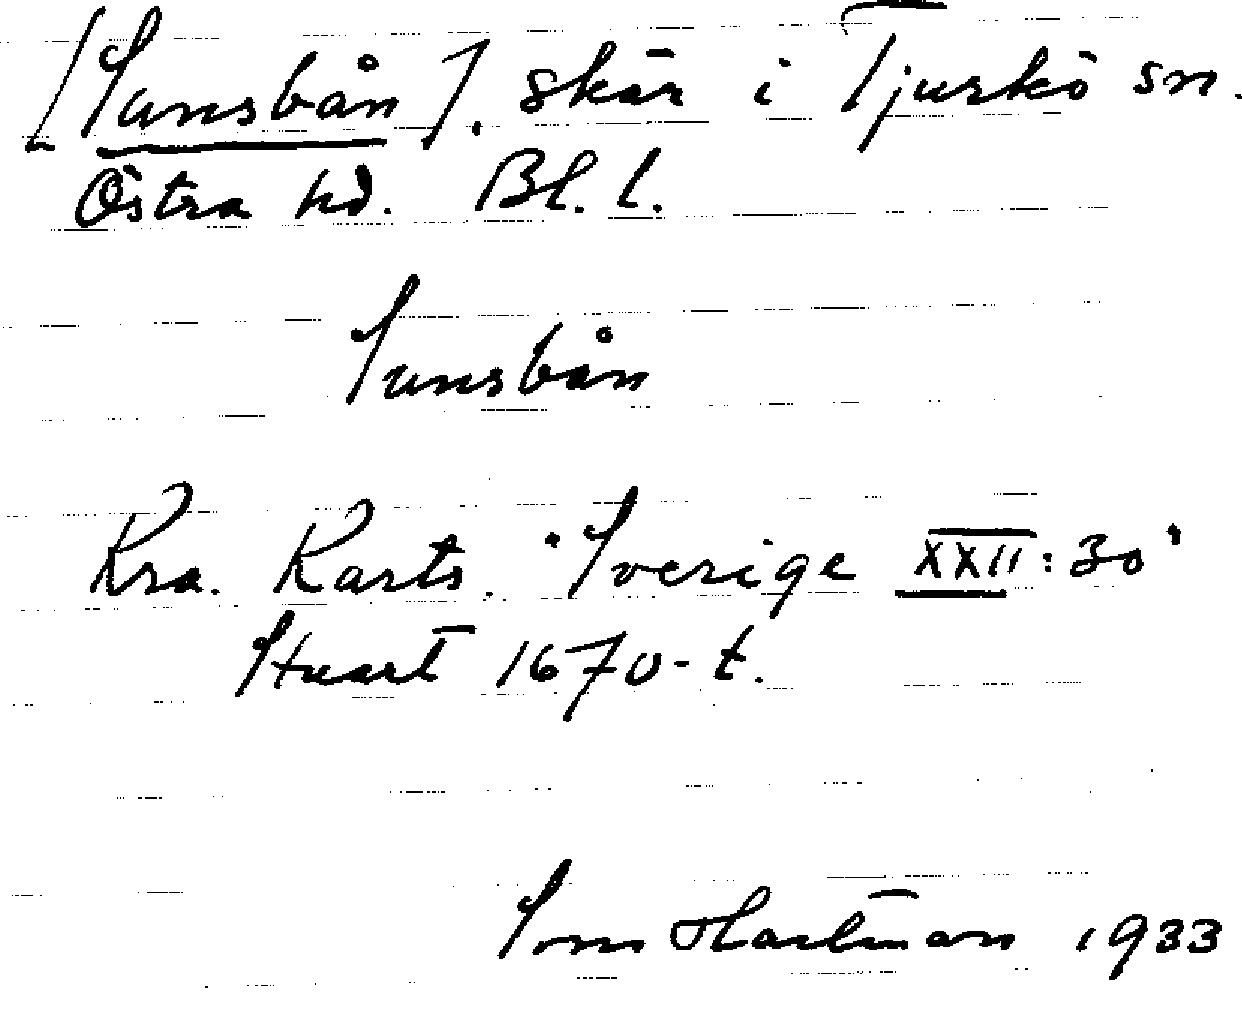 [Sunsbån]. skär i Tjurkö sn.
Östra hd. Bl. l.
Sunsbån
Kra. Karts. "Sverige XXII:30"
Stuart 1670-t.
Tom Hartman 1933